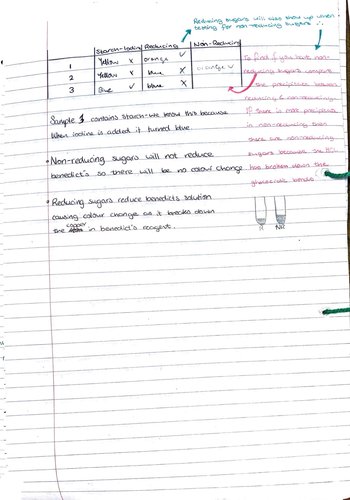 Reducing sugars will also show up when
testing for non-reducing sugars ∴
Starch-Iodine Reducing Non-Reducing
1 Yellow x orange ✓
2 Yellow x blue x orange ✓
3 Blue ✓ blue x
To find if you have non-
reducing sugars compare
the precipitate between
reducing & non-reducing.
If there is more precipitate
in non-reducing then
there are non-reducing
sugars because the HCl
has broken down the
glycosidic bonds
R NR
Sample 3 contains starch - we know this because
when iodine is added it turned blue
• Non-reducing sugars will not reduce
benedict's so there will be no colour change
• Reducing sugars reduce benedicts solution
causing colour change as it breaks down
the copper in benedict's reagent.